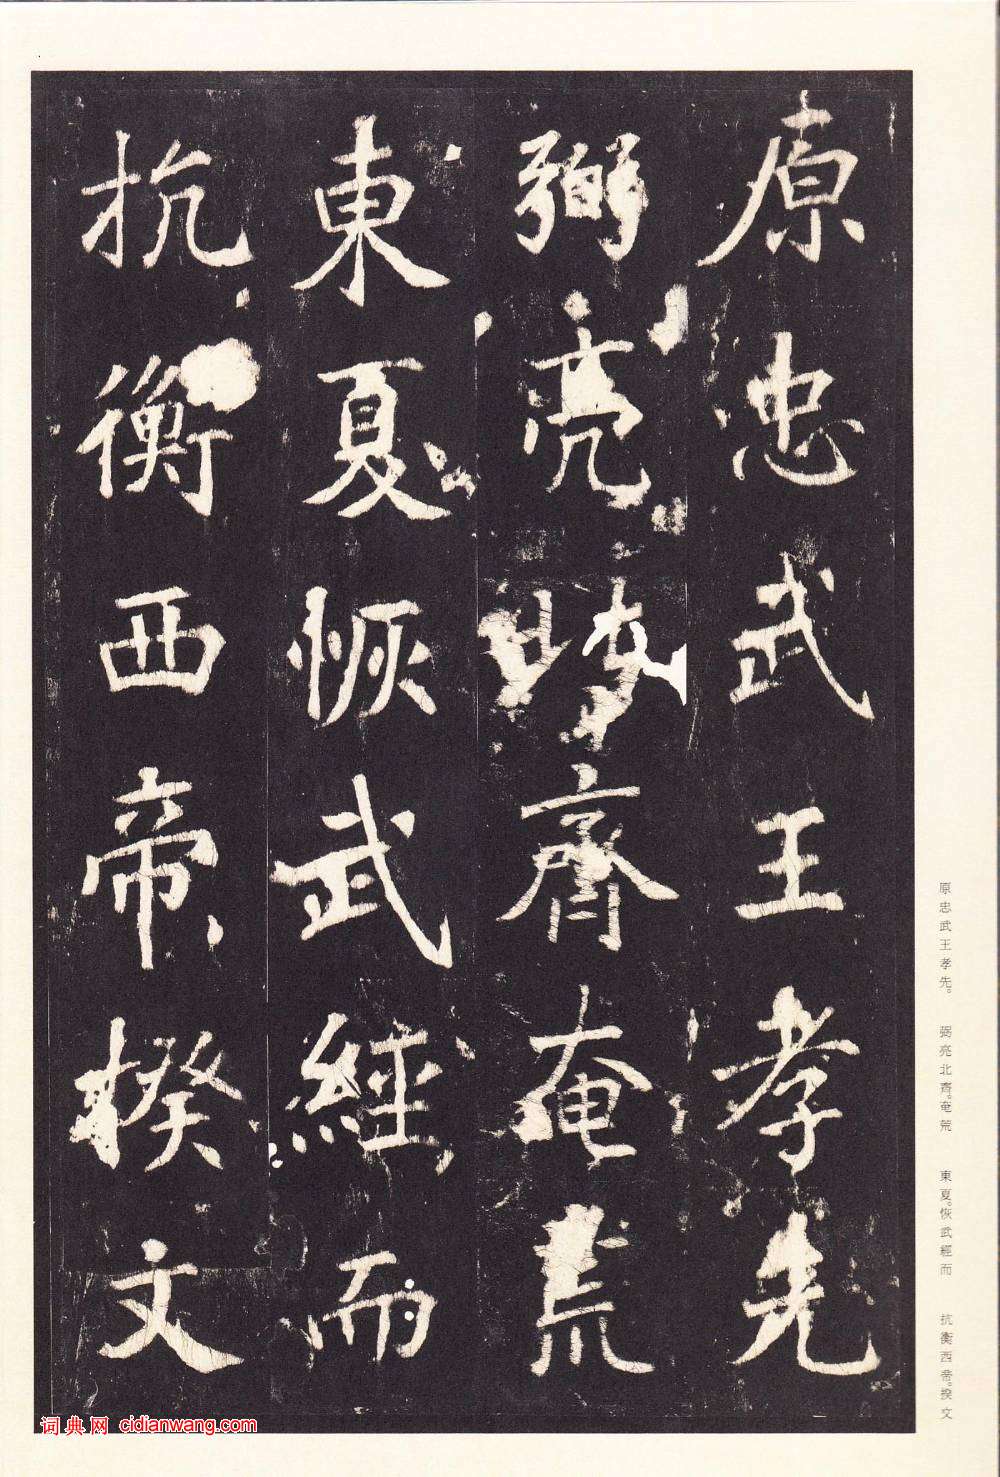 原忠武王孝先
弼亮北齊奄荒
東夏恢武經而
抗衡西帝揆文
原忠武王孝先。 弼亮北齊。奄荒 東夏。恢武經而 抗衡西帝。揆文
词典网 cidianwang.com